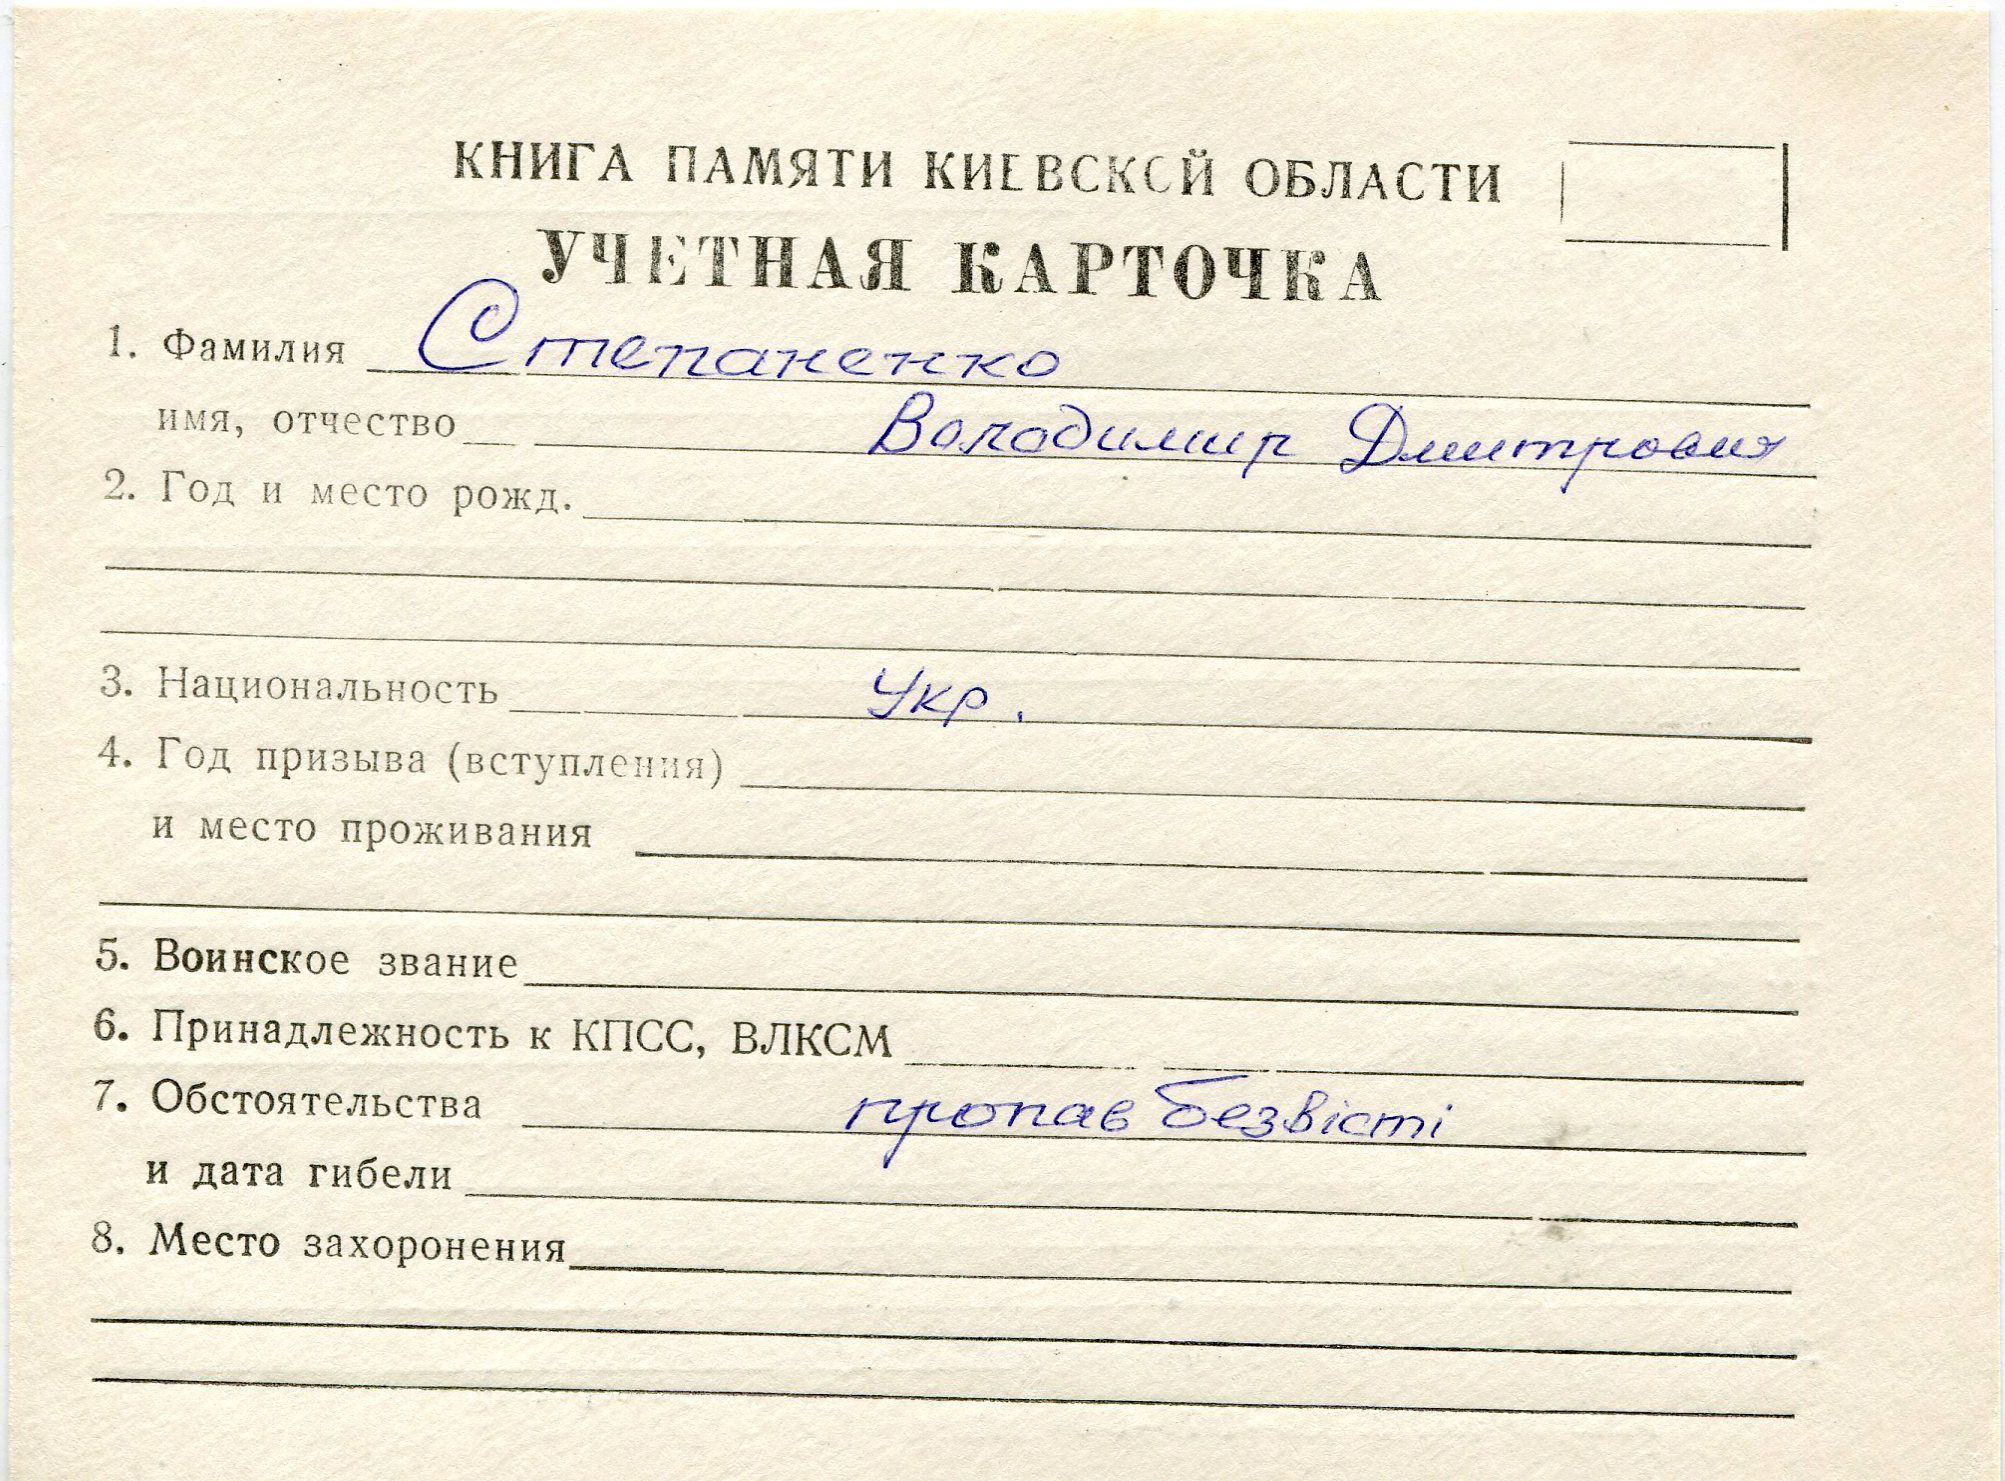 КНИГА ПАМЯТИ КИЕВСКОЙ ОБЛАСТИ
УЧЕТНАЯ КАРТОЧКА
1. Фамилия Степаненко
имя, отчество Володимир Дмитрович
2. Год и место рожд.
3. Национальность Укр.
4. Год призыва (вступления)
и место проживания
5. Воинское звание
6. Принадлежность к КПСС, ВЛКСМ
7. Обстоятельства пропав безвісті
и дата гибели
8. Место захоронения